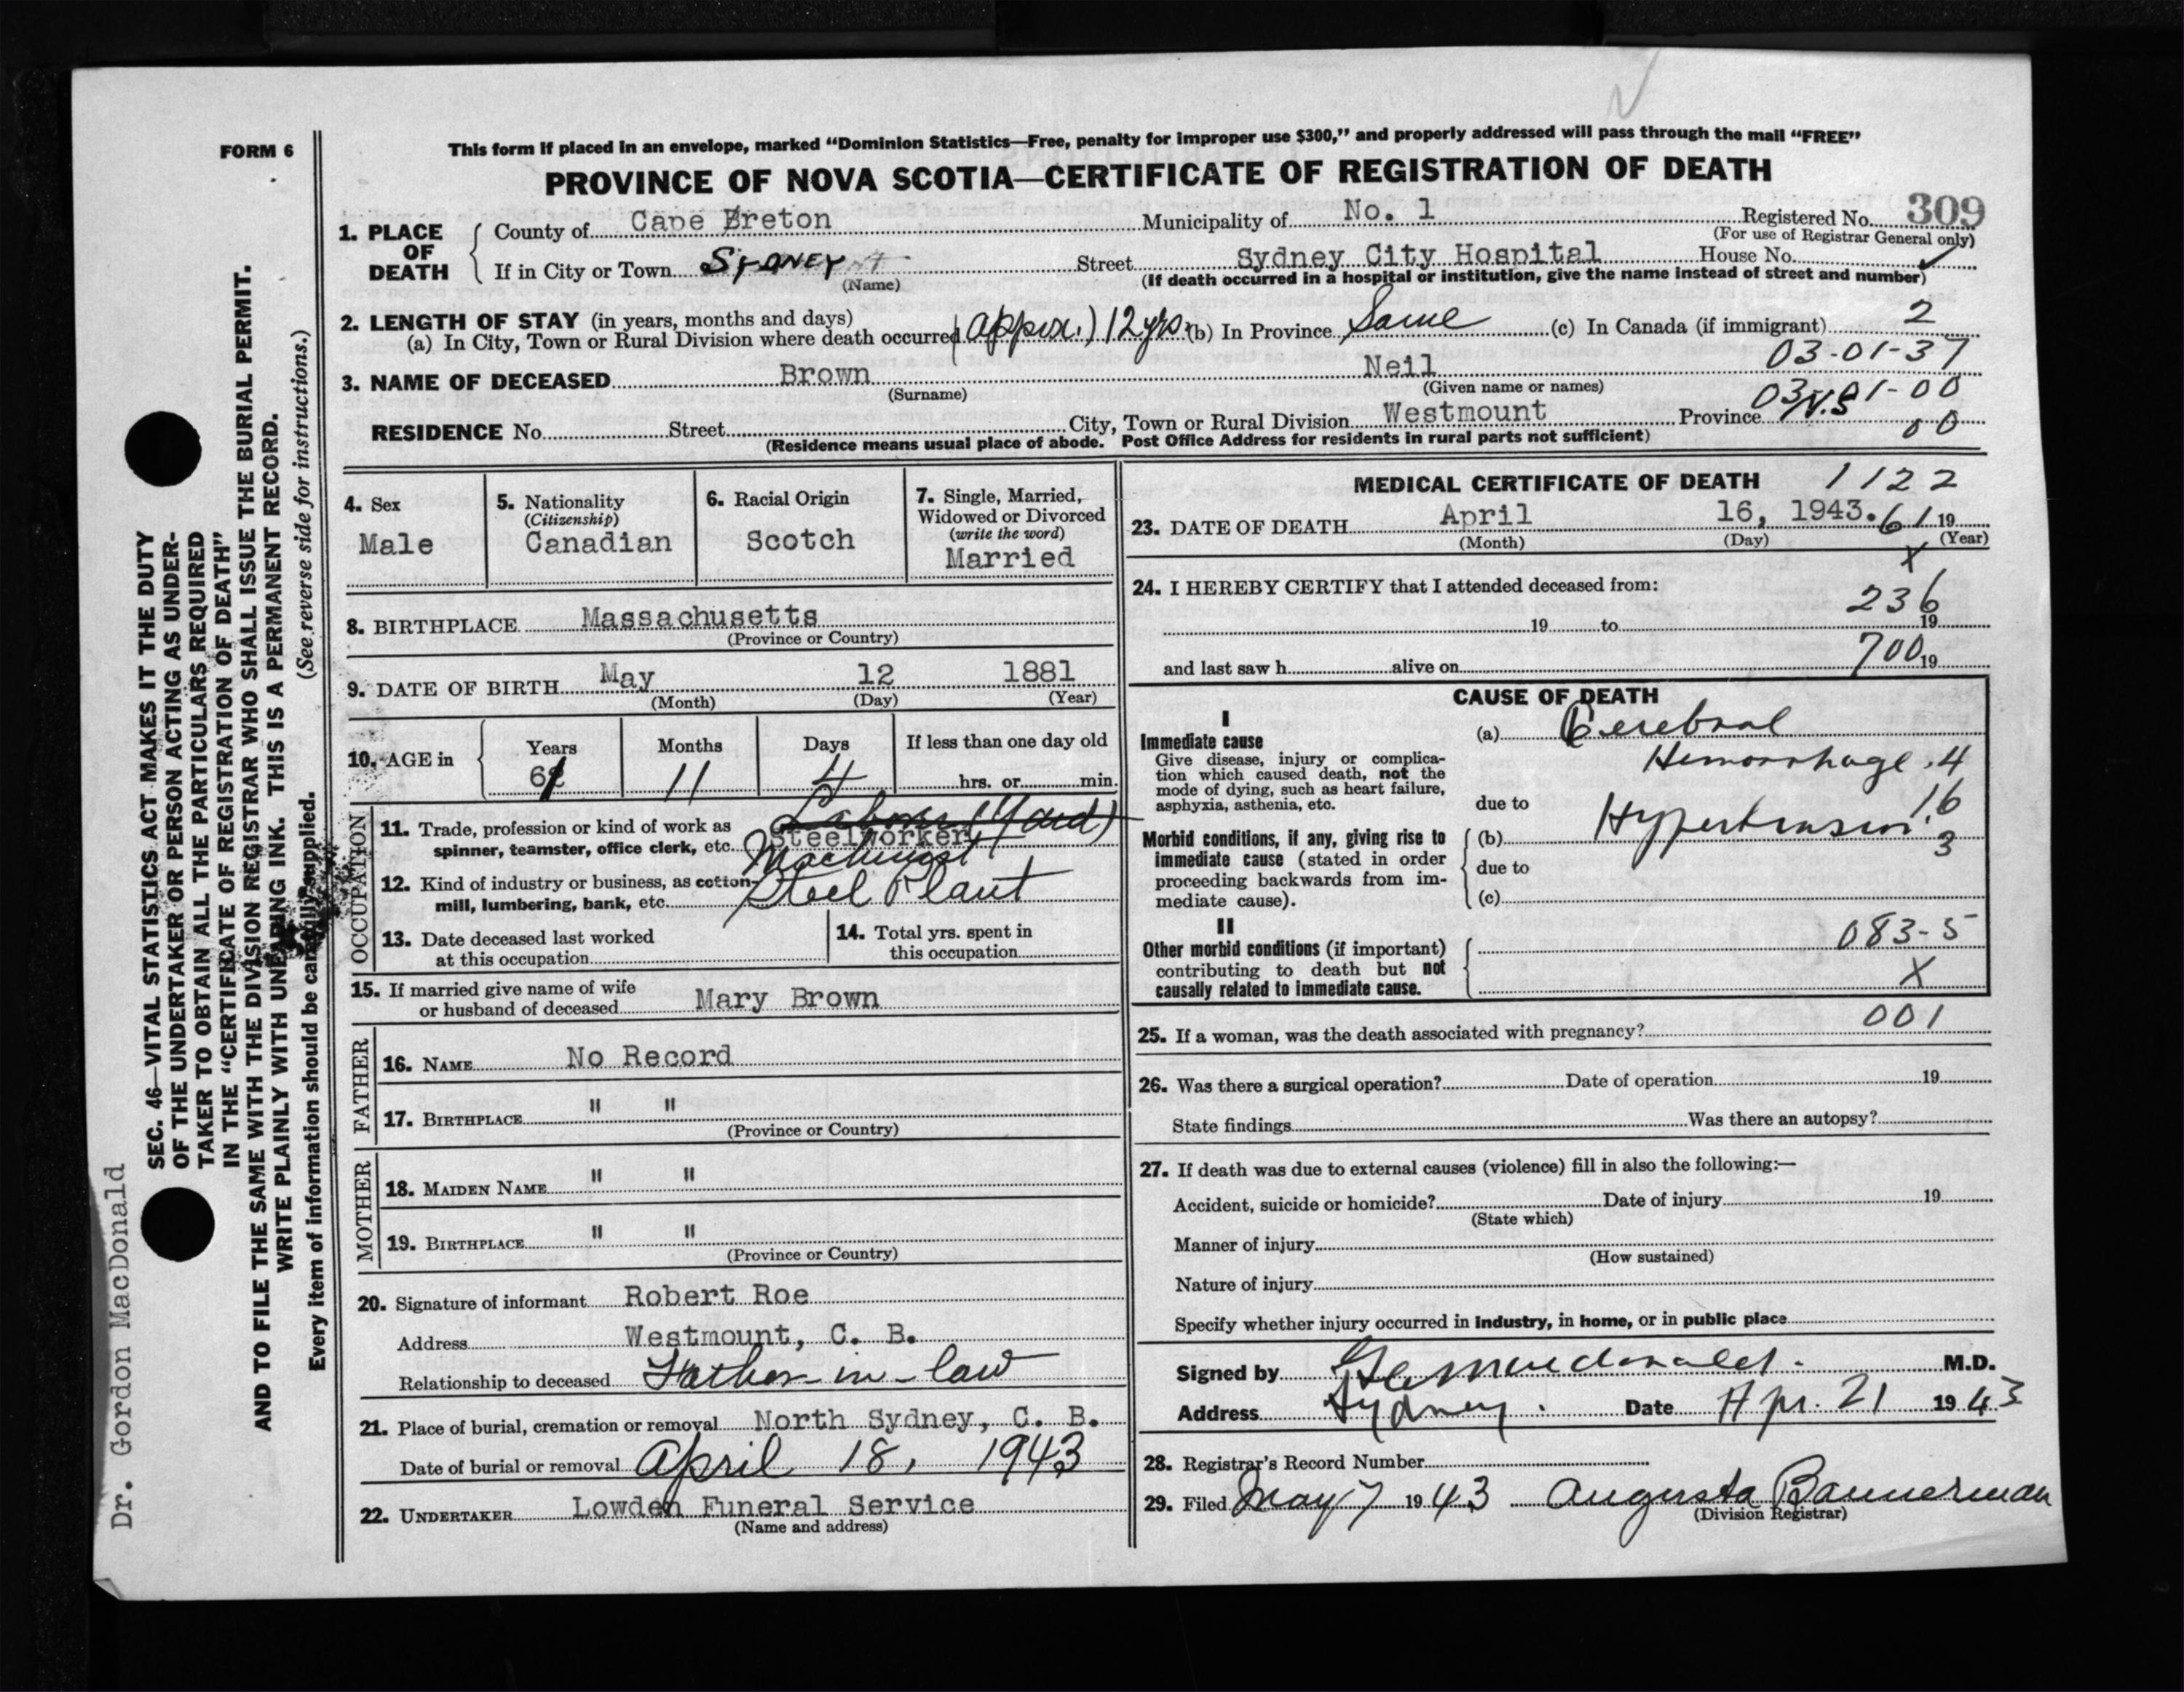 FORM 6
This form if placed in an envelope, marked "Dominion Statistics—Free, penalty for improper use $300," and properly addressed will pass through the mail "FREE"
PROVINCE OF NOVA SCOTIA—CERTIFICATE OF REGISTRATION OF DEATH
1. PLACE OF DEATH
County of Cape Breton Municipality of No. 1 Registered No. 309
(For use of Registrar General only)
If in City or Town SYDNEY Street Sydney City Hospital House No.
(Name) (If death occurred in a hospital or institution, give the name instead of street and number)
2. LENGTH OF STAY (in years, months and days)
(a) In City, Town or Rural Division where death occurred (approx.) 12 yrs. (b) In Province Same (c) In Canada (if immigrant) 2
03-01-37
3. NAME OF DECEASED Brown Neil
(Surname) (Given name or names)
03-01-00
RESIDENCE No. Street City, Town or Rural Division Westmount Province N.S
00
(Residence means usual place of abode. Post Office Address for residents in rural parts not sufficient)
4. Sex
Male
5. Nationality
(Citizenship)
Canadian
6. Racial Origin
Scotch
7. Single, Married,
Widowed or Divorced
(write the word)
Married
8. BIRTHPLACE Massachusetts
(Province or Country)
9. DATE OF BIRTH May 12 1881
(Month) (Day) (Year)
10. AGE in
Years Months Days If less than one day old
61 11 4 hrs. or min.
OCCUPATION
11. Trade, profession or kind of work as
spinner, teamster, office clerk, etc. Labor (Yard)
Steelworker
Machinist
12. Kind of industry or business, as cotton-
mill, lumbering, bank, etc. Steel Plant
13. Date deceased last worked
at this occupation
14. Total yrs. spent in
this occupation
15. If married give name of wife
or husband of deceased Mary Brown
FATHER
16. NAME No Record
17. BIRTHPLACE " "
(Province or Country)
MOTHER
18. MAIDEN NAME " "
19. BIRTHPLACE " "
(Province or Country)
20. Signature of informant Robert Roe
Address Westmount, C. B.
Relationship to deceased Father-in-law
21. Place of burial, cremation or removal North Sydney, C. B.
Date of burial or removal April 18, 1943
22. UNDERTAKER Lowden Funeral Service
(Name and address)
MEDICAL CERTIFICATE OF DEATH 1122
23. DATE OF DEATH April 16, 1943. 61 19
(Month) (Day) (Year)
X
24. I HEREBY CERTIFY that I attended deceased from:
236
19 to 19
700
and last saw h alive on 19
CAUSE OF DEATH
I
Immediate cause
Give disease, injury or complica-
tion which caused death, not the
mode of dying, such as heart failure,
asphyxia, asthenia, etc.
(a) Cerebral
Hemorrhage .4
16
due to
Morbid conditions, if any, giving rise to
immediate cause (stated in order
proceeding backwards from im-
mediate cause).
(b) Hypertension 3
due to
(c)
II
Other morbid conditions (if important)
contributing to death but not
causally related to immediate cause.
083-5
X
001
25. If a woman, was the death associated with pregnancy?
26. Was there a surgical operation? Date of operation 19
State findings Was there an autopsy?
27. If death was due to external causes (violence) fill in also the following:—
Accident, suicide or homicide? Date of injury 19
(State which)
Manner of injury
(How sustained)
Nature of injury
Specify whether injury occurred in industry, in home, or in public place
Signed by Macdonald. M.D.
Address Sydney. Date Apr. 21 1943
28. Registrar's Record Number
29. Filed May 7 1943 Augusta Bannerman
(Division Registrar)
SEC. 46—VITAL STATISTICS ACT MAKES IT THE DUTY
OF THE UNDERTAKER OR PERSON ACTING AS UNDER-
TAKER TO OBTAIN ALL THE PARTICULARS REQUIRED
IN THE "CERTIFICATE OF REGISTRATION OF DEATH"
AND TO FILE THE SAME WITH THE DIVISION REGISTRAR WHO SHALL ISSUE THE BURIAL PERMIT.
WRITE PLAINLY WITH UNFADING INK. THIS IS A PERMANENT RECORD.
Every item of information should be carefully supplied. (See reverse side for instructions.)
Dr. Gordon MacDonald